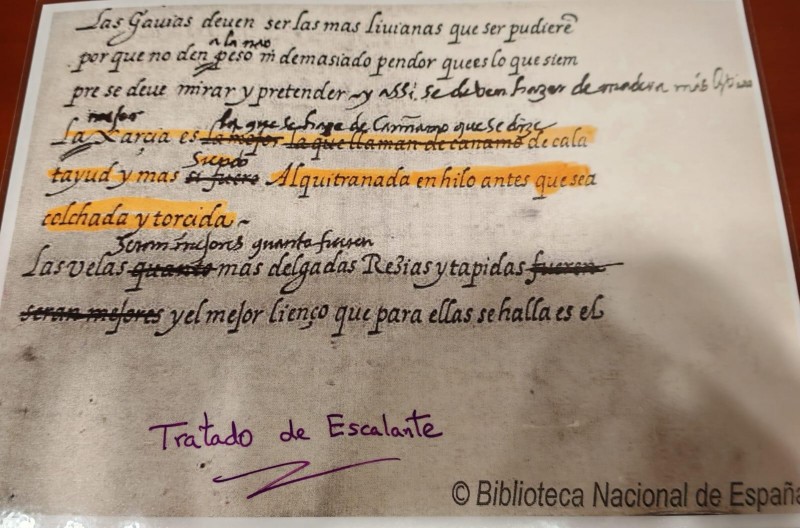 Las Gauias deuen ser las mas liuianas que ser pudierē
a la nao
por que no den peso ni demasiado pendor que es lo que siem
pre se deue mirar y pretender y assi se deben hazer de madera más
mejor la que se haze de Cañamo que se dize
La Xarçia es la mejor la que llaman de cañamo de cala
siendo
tayud y mas si fuere Alquitranada en hilo antes que sea
colchada y torcida
seran mejores quanto fueren
Las velas quanto mas delgadas Rezias y tapidas fueren
seran mejores y el mejor lienço que para ellas se halla es el
Tratado de Escalante
© Biblioteca Nacional de España